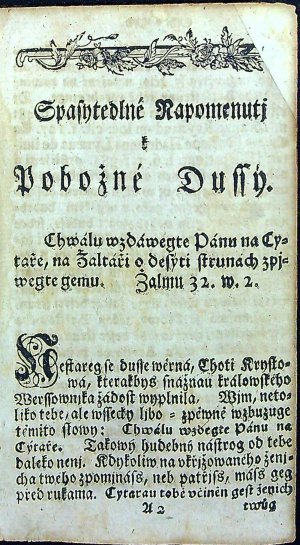 Spasytedlné Napomenutj
k
Pobožné Dussy.
Chwálu wzdáwegte Pánu na Cy-
taře, na Žaltáři o desýti strunách zpj-
wegte gemu. Žalmu 32. w. 2.
Nestareg se dusse wěrná, Choti Krysto-
wá, kterakbys snážnau králowského
Werssownjka žádost wyplnila. Wjm, neto-
liko tebe, ale wssecky ljbo = zpěwné wzbuzuge
těmito slowy: Chwálu wzdegte Pánu na
Cýtaře. Takowý hudebný nástrog od tebe
daleko nenj. Kdykoliw na vkřižowaného ženj-
cha twého zpomjnáss, neb patřjss, máss geg
pred rukama. Cytarau tobě včiněn gest ženich
A 2 twůg